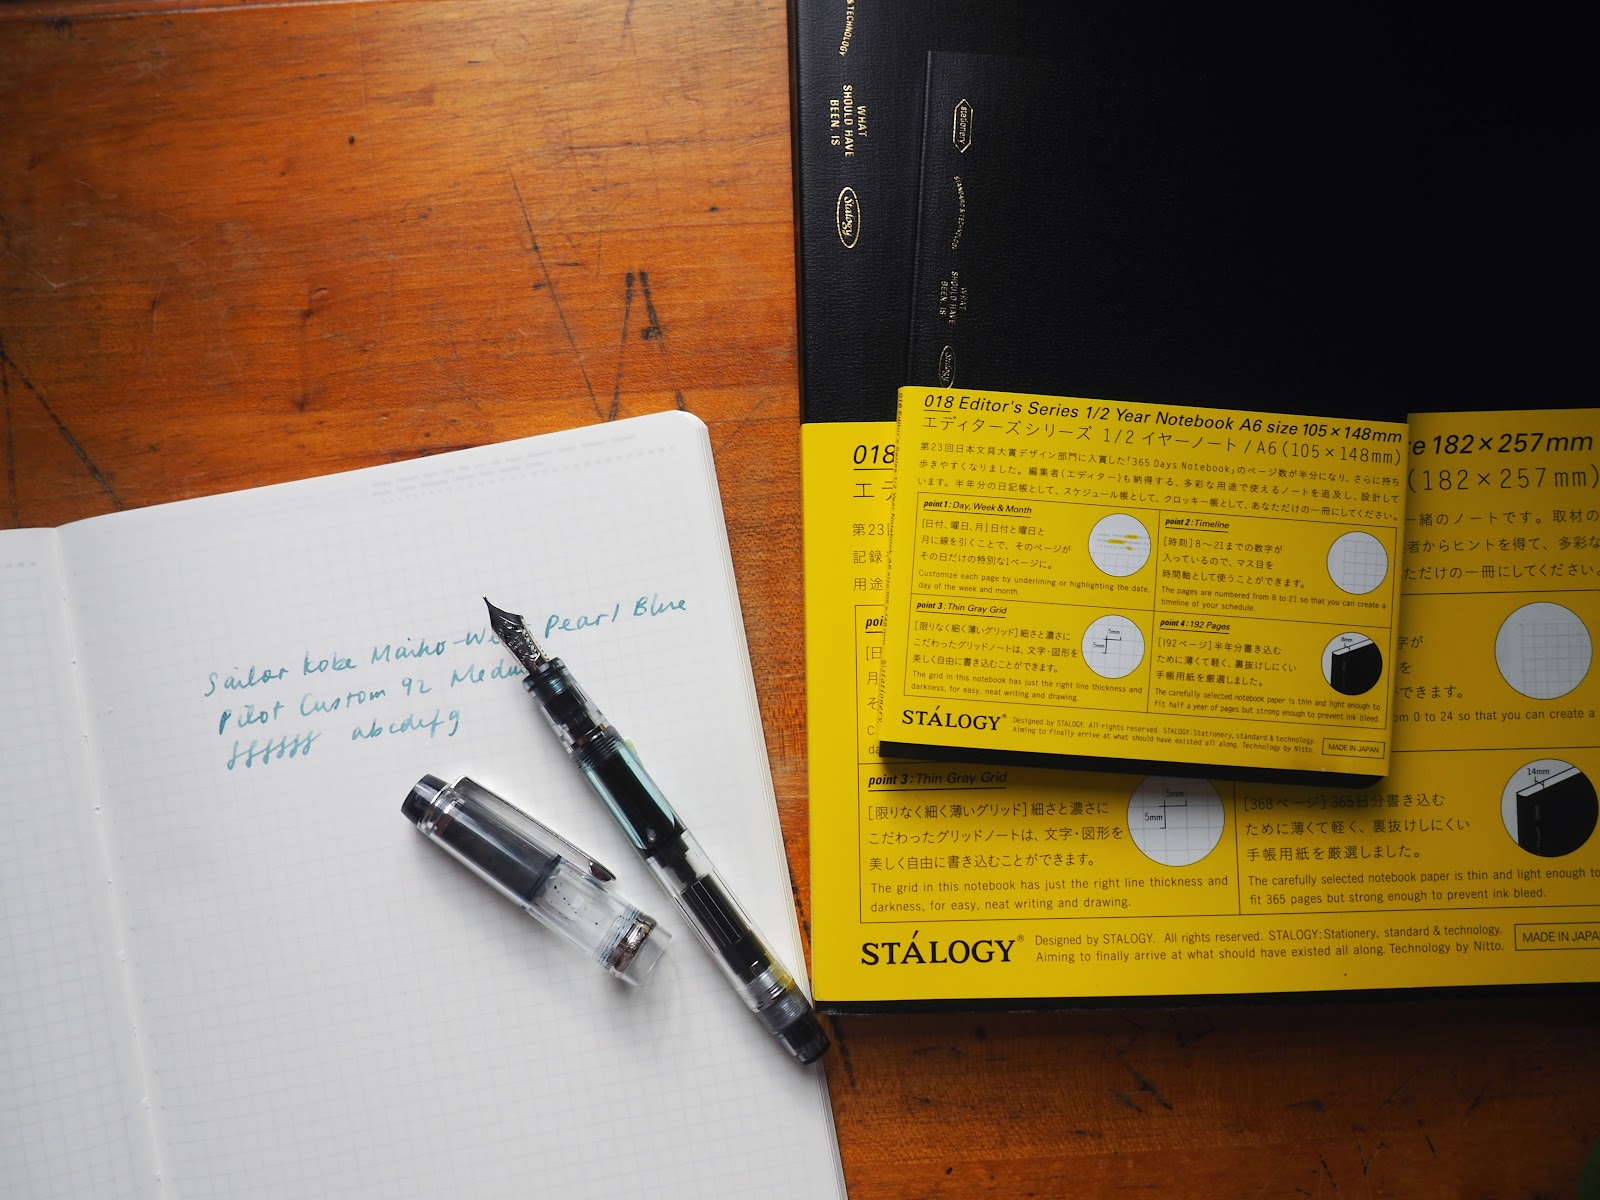 Sailor Kobe Maiko-
Pearl Blue
Pilot Custom 92
abcdefg
& TECHNOLOGY
WHAT
SHOULD HAVE
BEEN, IS
Stalogy
stationery
STANDARD & TECHNOLOGY
WHAT
SHOULD HAVE
BEEN, IS
Stalogy
018 Editor's Series 1/2 Year Notebook A6 size 105×148mm
エディターズシリーズ 1/2 イヤーノート / A6 (105×148mm)
第23回日本文具大賞デザイン部門に入賞した「365 Days Notebook」のページ数が半分になり、さらに持ち
歩きやすくなりました。編集者(エディター)も納得する、多彩な用途で使えるノートを追及し、設計して
います。半年分の日記帳として、スケジュール帳として、クロッキー帳として、あなただけの一冊にしてください。
point 1 : Day, Week & Month
[日付、曜日、月] 日付と曜日と
月に線を引くことで、そのページが
その日だけの特別な1ページに。
Customize each page by underlining or highlighting the date,
day of the week and month.
point 2 : Timeline
[時刻] 8〜21までの数字が
入っているので、マス目を
時間軸として使うことができます。
The pages are numbered from 8 to 21 so that you can create a
timeline of your schedule.
point 3 : Thin Gray Grid
[限りなく細く薄いグリッド] 細さと濃さに
こだわったグリッドノートは、文字・図形を
美しく自由に書き込むことができます。
The grid in this notebook has just the right line thickness and
darkness, for easy, neat writing and drawing.
5mm
5mm
point 4 : 192 Pages
[192ページ] 半年分書き込む
ために薄くて軽く、裏抜けしにくい
手帳用紙を厳選しました。
The carefully selected notebook paper is thin and light enough to
fit half a year of pages but strong enough to prevent ink bleed.
8mm
STÁLOGY®
Designed by STALOGY. All rights reserved. STALOGY: Stationery, standard & technology.
Aiming to finally arrive at what should have existed all along. Technology by Nitto.
MADE IN JAPAN
018
182×257mm
エ
(182×257mm)
第23
一緒のノートです。取材の
記録
者からヒントを得て、多彩な
用途
ただけの一冊にしてください。
できます。
from 0 to 24 so that you can create a
point 3 : Thin Gray Grid
[限りなく細く薄いグリッド] 細さと濃さに
こだわったグリッドノートは、文字・図形を
美しく自由に書き込むことができます。
The grid in this notebook has just the right line thickness and
darkness, for easy, neat writing and drawing.
5mm
5mm
[368ページ] 365日分書き込む
ために薄くて軽く、裏抜けしにくい
手帳用紙を厳選しました。
The carefully selected notebook paper is thin and light enough to
fit 365 pages but strong enough to prevent ink bleed.
14mm
STÁLOGY®
Designed by STALOGY. All rights reserved. STALOGY: Stationery, standard & technology.
Aiming to finally arrive at what should have existed all along. Technology by Nitto.
MADE IN JAPAN